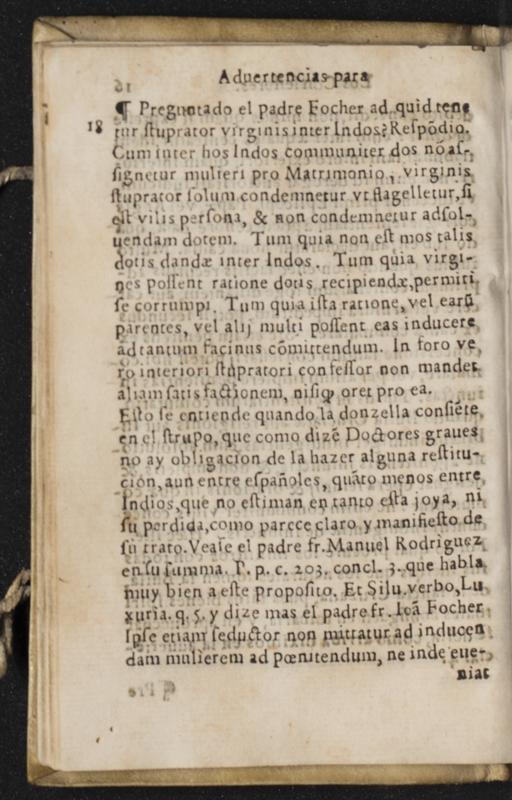 Aduertencias para
¶ Preguntado el padre Focher ad quid tene
18 tur stuprator virginis inter Indos? Respōdio.
Cum inter hos Indos communiter dos nō as-
signetur mulieri pro Matrimonio, virginis
stuprator solum condemnetur vt flagelletur, si
est vilis persona, & non condemnetur adsol-
uendam dotem. Tum quia non est mos talis
dotis dandæ inter Indos. Tum quia virgi-
nes possent ratione dotis recipiendæ, permiti
se corrumpi. Tum quia ista ratione, vel earū
parentes, vel alij multi possent eas inducere
ad tantum facinus cōmittendum. In foro ve
ro interiori stupratori confessor non mandet
aliam satis factionem, nisiq; oret pro ea.
Esto se entiende quando la donzella consiēte
en el strupo, que como dizē Doctores graues
no ay obligacion de la hazer alguna restitu-
cion, aun entre españoles, quāto menos entre
Indios, que no estiman en tanto esta joya, ni
su perdida, como parece claro y manifiesto de
su trato. Vease el padre fr. Manuel Rodriguez
en su summa. P. p. c. 203. concl. 3. que habla
muy bien a este proposito. Et Silu. verbo, Lu
xuria. q. 5. y dize mas el padre fr. Ioā Focher
Ipse etiam seductor non mittatur ad inducen
dam mulierem ad pœnitendum, ne inde eue-
niat